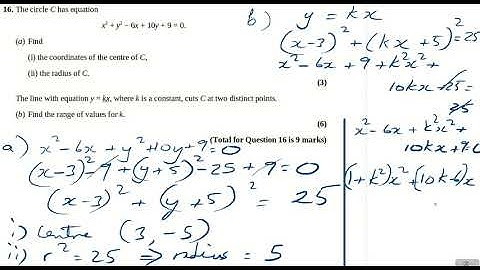 16. The circle C has equation
x² + y² − 6x + 10y + 9 = 0.
(a) Find
(i) the coordinates of the centre of C,
(ii) the radius of C.
(3)
The line with equation y = kx, where k is a constant, cuts C at two distinct points.
(b) Find the range of values for k.
(6)
(Total for Question 16 is 9 marks)
a) x² − 6x + y² + 10y + 9 = 0
(x − 3)² − 9 + (y + 5)² − 25 + 9 = 0
(x − 3)² + (y + 5)² = 25
i) Centre (3, −5)
ii) r² = 25 ⇒ radius = 5
b) y = kx
(x − 3)² + (kx + 5)² = 25
x² − 6x + 9 + k²x² +
10kx + 25 =
25
x² − 6x + k²x² +
10kx + 9 = 0
(1 + k²)x² + (10k − 6)x